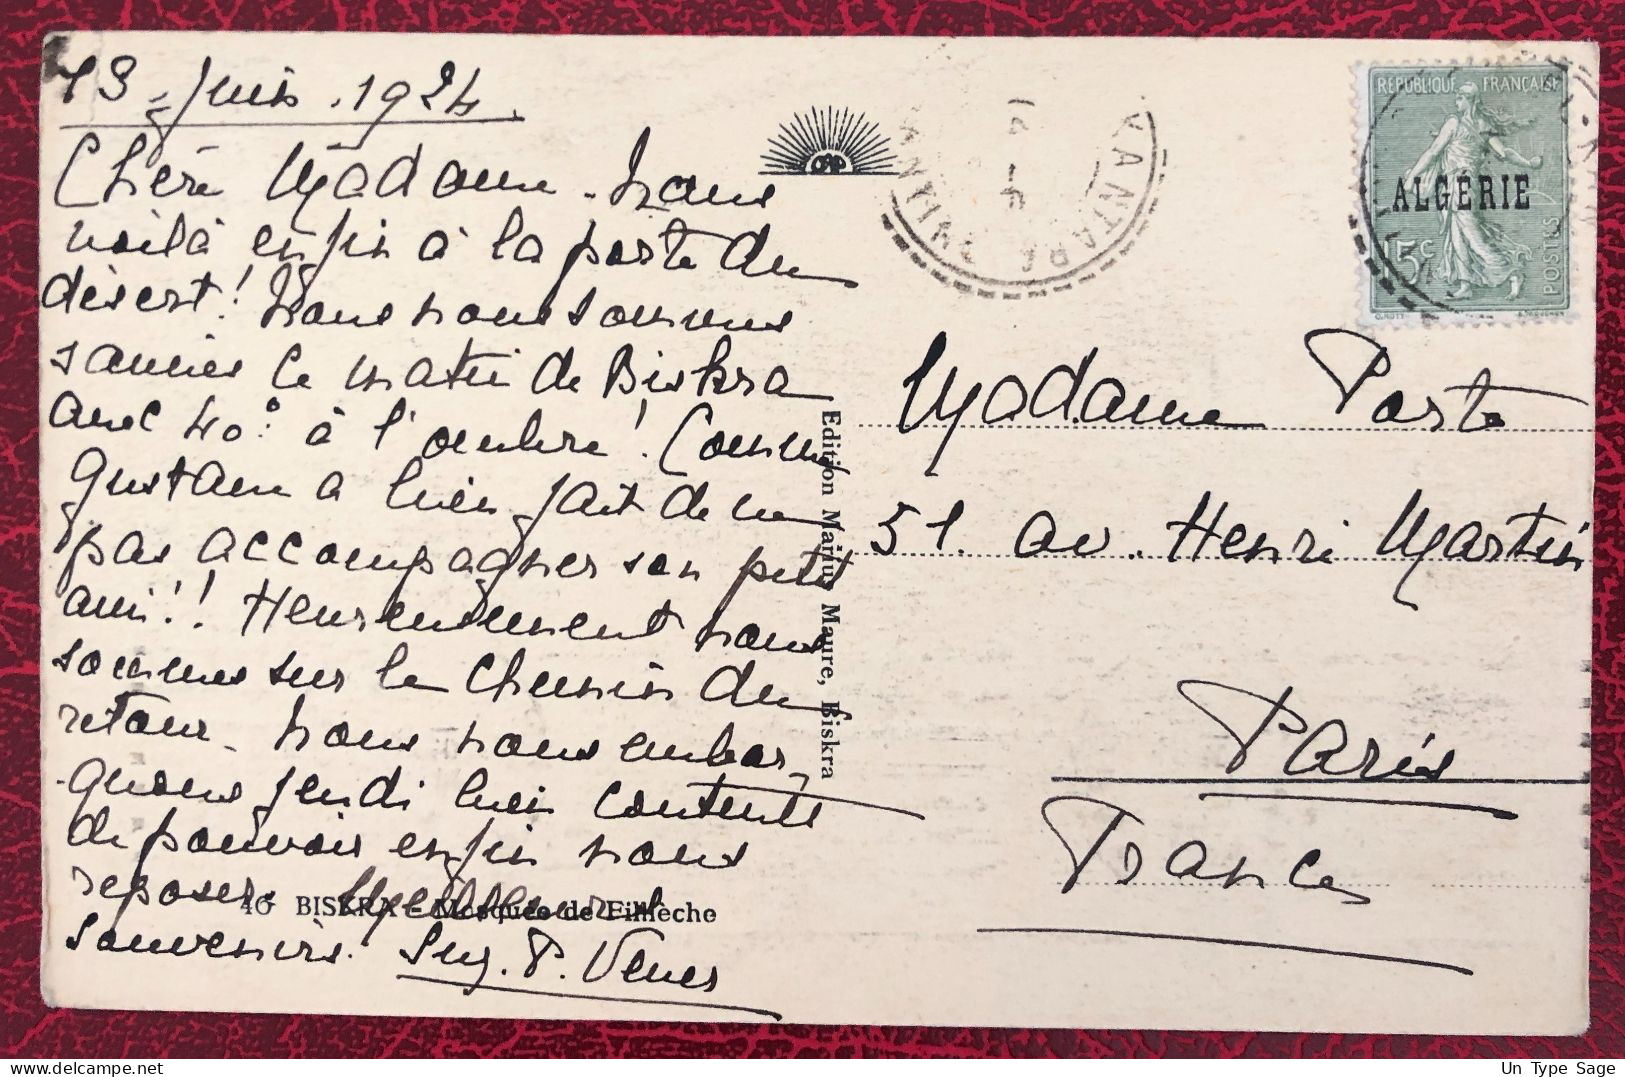 13 Juin 1924
Chère Madame. Nous
voilà enfin à la porte du
désert! Nous nous sommes
sauvées ce matin de Biskra
avec 40° à l'ombre! Comme
Gustave a bien fait de ne
pas accompagner son petit
ami!! Heureusement nous
sommes sur le chemin du
retour. Nous nous embar-
quons jeudi bien contents
de pouvoir enfin nous
reposer.
souvenirs. Suz. P.
40 BISKRA - Mosquée de Filiache
Edition Marius Maure, Biskra
RÉPUBLIQUE FRANÇAISE
ALGÉRIE
15c
POSTES
Madame Porte
51. av. Henri Martin
Paris
France
Un Type Sage